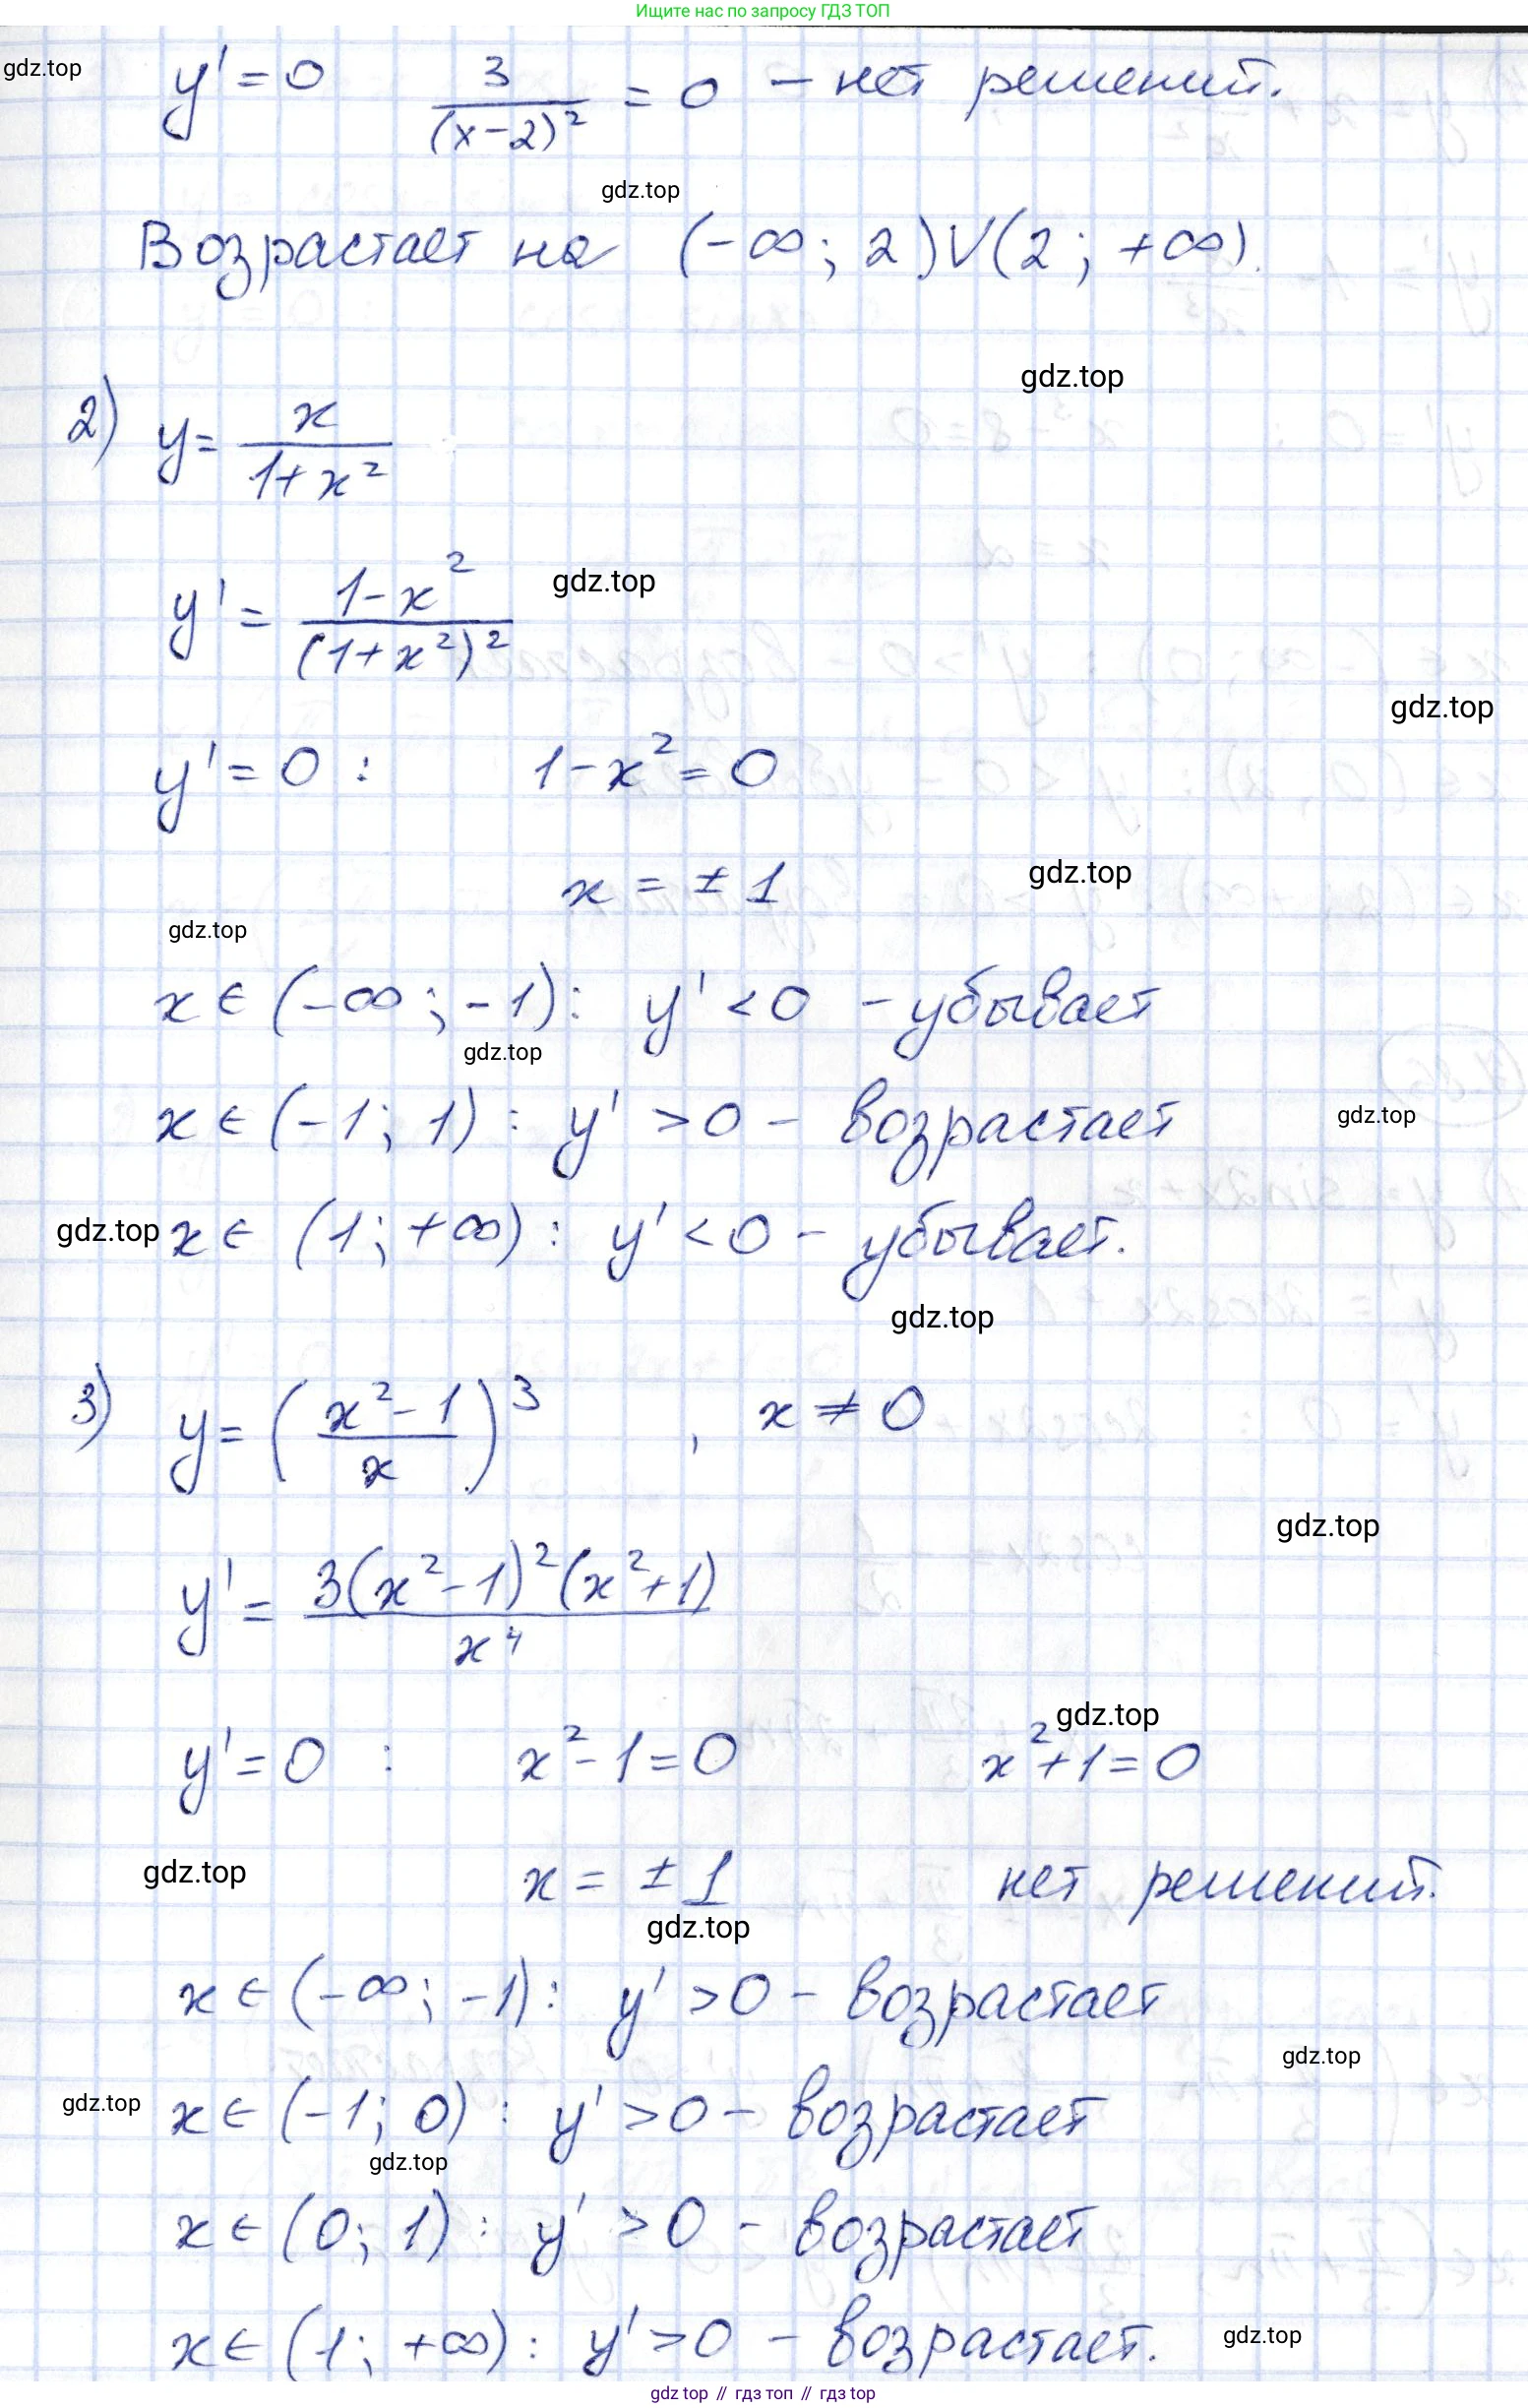 Ищите нас по запросу ГДЗ ТОП
gdz.top
y' = 0    3/(x-2)² = 0 – нет решений.
gdz.top
Возрастает на (-∞; 2)∪(2; +∞).
gdz.top
2) y = x/(1+x²)
y' = (1-x²)/(1+x²)²
gdz.top
gdz.top
y' = 0 :    1-x² = 0
x = ± 1
gdz.top
gdz.top
x ∈ (-∞; -1): y' < 0 – убывает
gdz.top
x ∈ (-1; 1) : y' > 0 – возрастает
gdz.top
gdz.top
x ∈ (1; +∞) : y' < 0 – убывает.
gdz.top
3) y = ((x²-1)/x)³ , x ≠ 0
gdz.top
y' = 3(x²-1)²(x²+1)/x⁴
gdz.top
y' = 0 :    x²-1 = 0    x²+1 = 0
gdz.top
x = ± 1    нет решений.
gdz.top
x ∈ (-∞; -1): y' > 0 – возрастает
gdz.top
gdz.top
x ∈ (-1; 0) : y' > 0 – возрастает
gdz.top
x ∈ (0; 1) : y' > 0 – возрастает
gdz.top
x ∈ (1; +∞) : y' > 0 – возрастает.
gdz top // гдз топ // гдз top